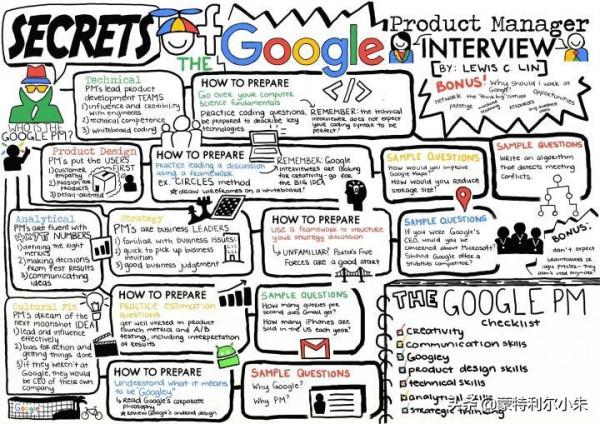 SECRETS Of
THE Google
Product Manager
INTERVIEW
BY: LEWIS C. LIN
WHO IS THE
GOOGLE PM?
Technical
PMs lead product
development TEAMS
1) influence and credibility
with engineers
2) technical competence
3) whiteboard coding
HOW TO PREPARE
Go over your computer
science fundamentals
Practice coding questions,
be prepared to describe key
technologies
</>
REMEMBER: the technical
interviewer does not expect
your coding syntax to be
perfect!
BONUS! Why should I work at
Google?
network
the "thinking" culture
opportunities
prestige
machine learning
resources
Product Design
PM's put the USERS
FIRST
1) customer
empathy
2) passion for
products
3) detail-oriented
HOW TO PREPARE
Practice leading a discussion
using a framework
ex. "CIRCLES method
draw wireframes on a whiteboard!
REMEMBER: Google
interviewers are looking
for creativity - go for
the BIG IDEA
SAMPLE QUESTIONS
How would you improve
Google Maps?
How would you reduce
storage size?
SAMPLE QUESTIONS
Write an algorithm
that detects
meeting conflicts.
Analytical
PMs are fluent with
NUMBERS
1) defining the right
metrics
2) making decisions
from test results
3) communicating
ideas
Strategy
PM's are business LEADERS
1) familiar with business issues
2) quick to pick up business
intuition
3) good business judgement
HOW TO PREPARE
Use a framework to structure
your strategy discussion
UNFAMILIAR? Porter's Five
Forces are a good start
SAMPLE QUESTIONS
If you were Google's
CEO, would you be
concerned about Microsoft?
Should Google offer a
StubHub competitor?
BONUS:
don't expect
brainteasers or
logic puzzles - they
don't used anymore
Cultural Fit
PM's dream of the
next moonshot IDEA
1) lead and influence
effectively
2) bias for action and
getting things done
3) if they weren't at
Google, they would
be CEO of their own
company.
HOW TO PREPARE
PRACTICE estimation
questions
get well versed in product
launch metrics and A/B
testing, including interpretation
of results
SAMPLE QUESTIONS
How many queries per
second does Gmail get?
How many iPhones are
sold in the US each year?
HOW TO PREPARE
Understand what it means
to be "Googley"
Read Google's corporate
philosophy
Review Google's android design
SAMPLE QUESTIONS
Why Google?
Why PM?
THE GOOGLE PM
checklist
creativity
communication skills
Googley
product design skills
technical skills
analytical skills
strategic thinking
Google
头条 @蒙特利尔小朱